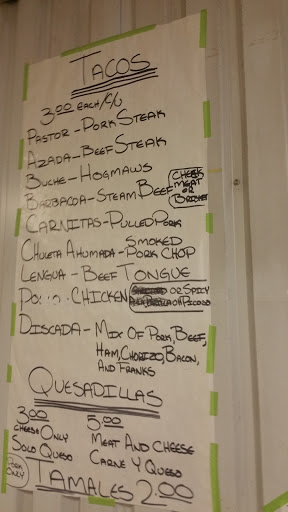 TACOS
3.00 EACH/C/U
PASTOR - PORK STEAK
AZADA - BEEF STEAK
BUCHE - HOGMAWS
BARBACOA - STEAM BEEF CHEEK MEAT OR BRISKET
CARNITAS - PULLED PORK
CHULETA AHUMADA - SMOKED PORK CHOP
LENGUA - BEEF TONGUE
CHICKEN OR SPICY
DISCADA - MIX OF PORK, BEEF,
HAM, CHORIZO, BACON,
AND FRANKS
QUESADILLAS
3.00 5.00
CHEESE ONLY MEAT AND CHEESE
SOLO QUESO CARNE Y QUESO
PORK ONLY
TAMALES 2.00